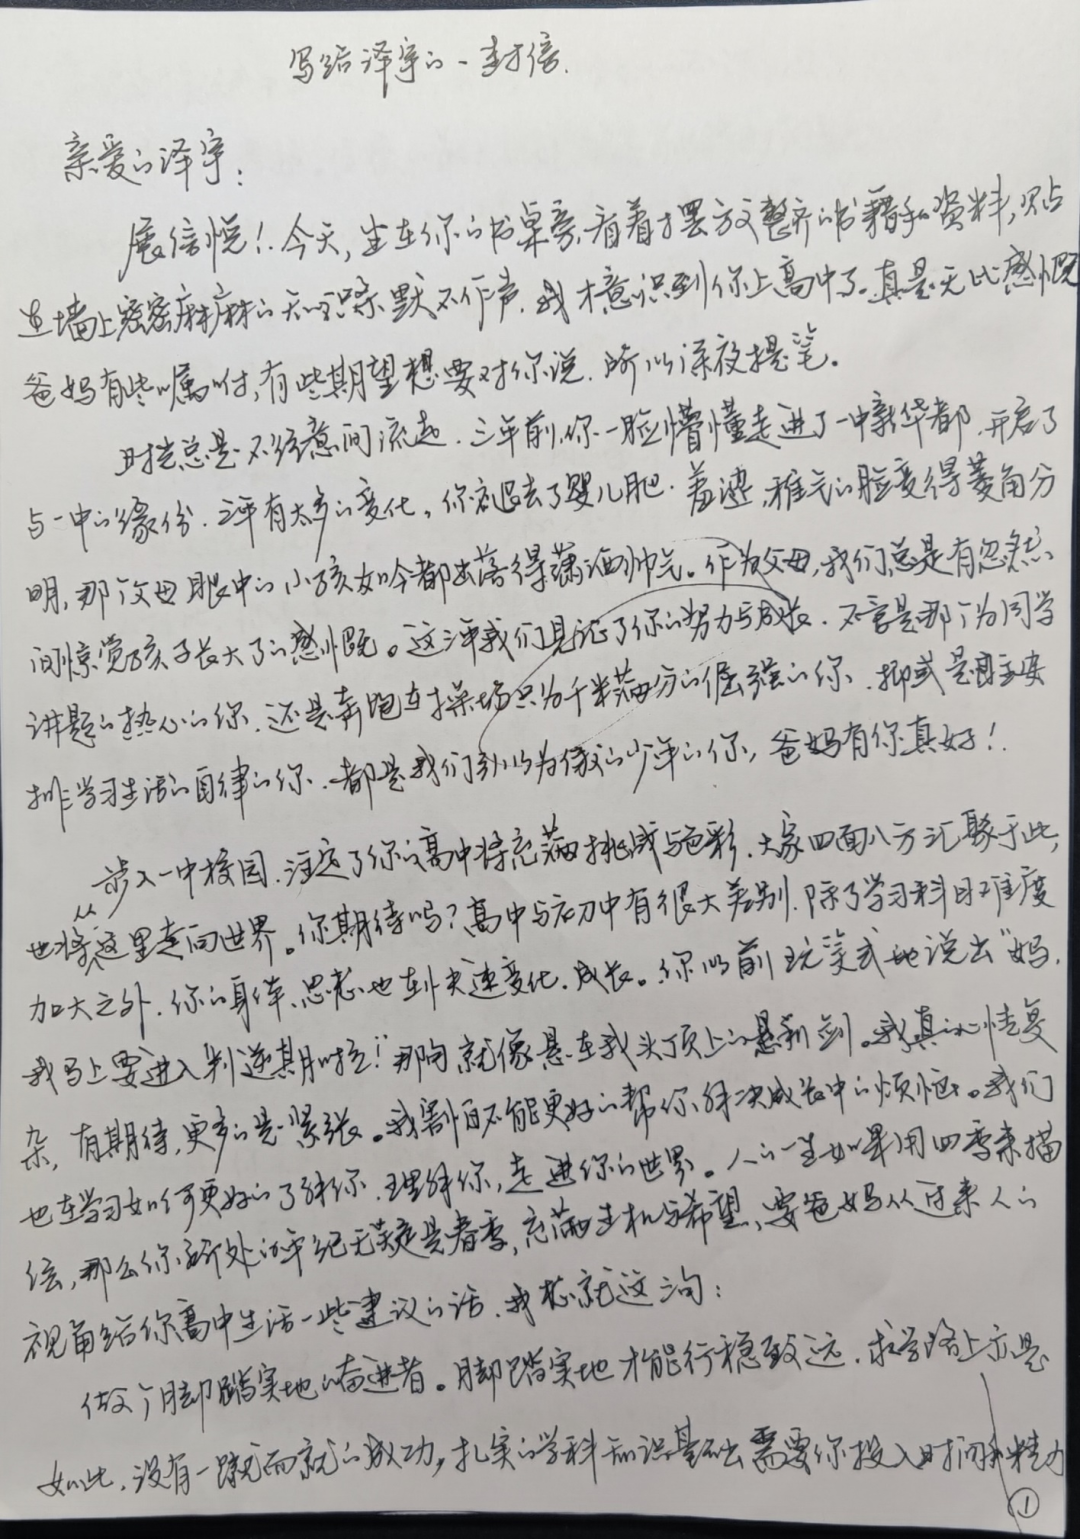 写给泽宇的一封信.
亲爱的泽宇:
展信悦!今天,坐在你的书桌旁,看着摆放整齐的书籍和资料,贴
墙上密密麻麻的知识条默不作声.我才意识到你上高中了。真是无比感慨
爸妈有些嘱咐,有些期望想要对你说.所以深夜提笔。
时光总是不经意间流走.三年前,你一脸懵懂走进了一中新华都.开启了
与一中的缘份.三年有太多的变化,你褪去了婴儿肥.羞涩,稚气的脸变得菱角分
明,那个父母眼中的小孩如今都出落得潇洒帅气。作为父母,我们总是有忽然
间惊觉孩子长大了的感慨。这三年我们见证了你的努力与成长.不管是那个为同学
讲题的热心的你.还是奔跑在操场只为千米满分的倔强的你.抑或是自主安
排学习生活的自律的你.都是我们引以为傲的少年的你,爸妈有你真好!
步入一中校园.注定了你的高中将充满挑战与色彩.大家四面八方汇聚于此,
也将从这里走向世界。你期待吗?高中与初中有很大差别.除了学习科目难度
加大之外.你的身体、思想也在快速变化.成长。你以前玩笑式地说出“妈,
我马上要进入判逆期啦!”那句就像悬在我头顶上的悬剑。我真的心情复
杂,有期待,更多的是紧张。我害怕不能更好的帮你解决成长中的烦恼。我们
也在学习如何更好的了解你.理解你,走进你的世界。人的一生如果用四季来描
绘,那么你所处的年纪无疑是春季,充满生机与希望,要爸妈从过来人的
视角给你高中生活一些建议的话.我想就这三句:
做个脚踏实地的奋进者。脚踏实地才能行稳致远.求学路上亦是
如此.没有一蹴而就的成功,扎实的学科知识基础需要你投入时间和精力
①